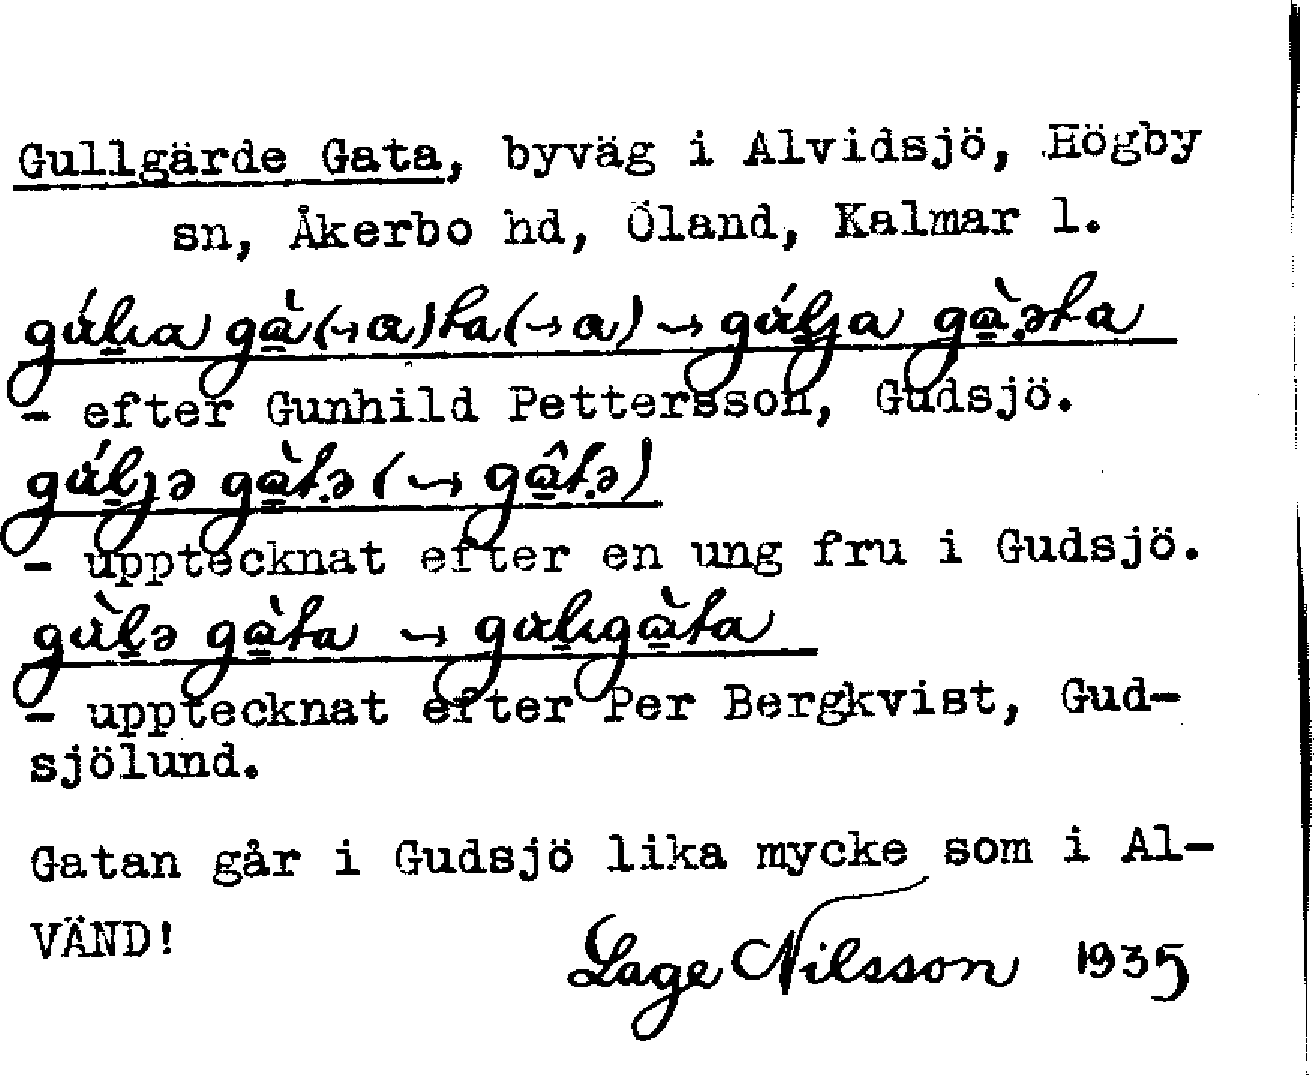 Gullgärde Gata, byväg i Alvidsjö, Högby
sn, Åkerbo hd, Öland, Kalmar l.
- efter Gunhild Pettersson, Gudsjö.
- upptecknat efter en ung fru i Gudsjö.
- upptecknat efter Per Bergkvist, Gud-
sjölund.
Gatan går i Gudsjö lika mycke som i Al-
VÄND!
Lage Nilsson 1935